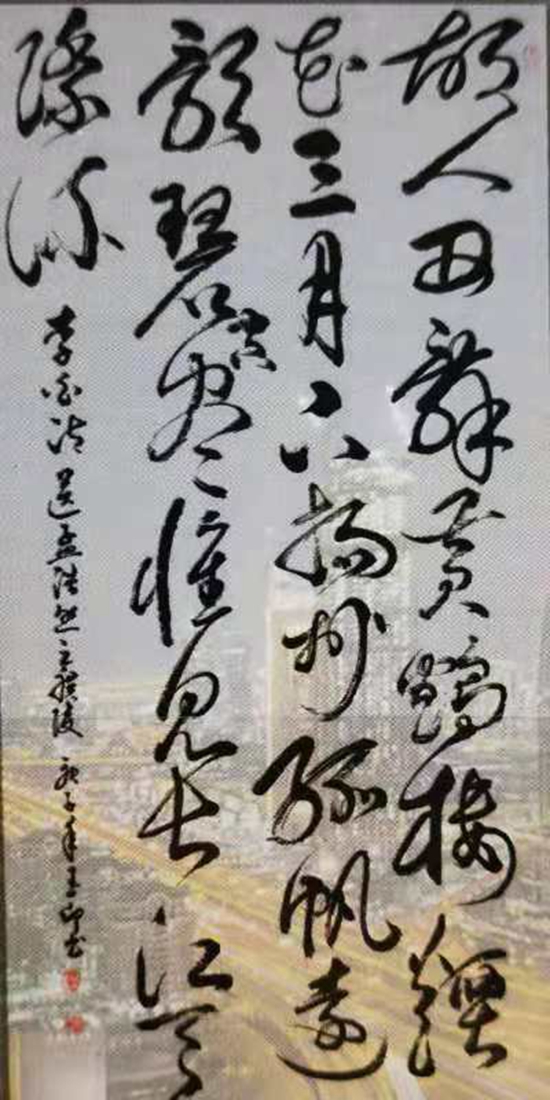 故人西辭黃鶴樓煙
花三月下揚州孤帆遠
影碧空盡惟見長江天
際流
李白詩送孟浩然之廣陵 庚子年王印書